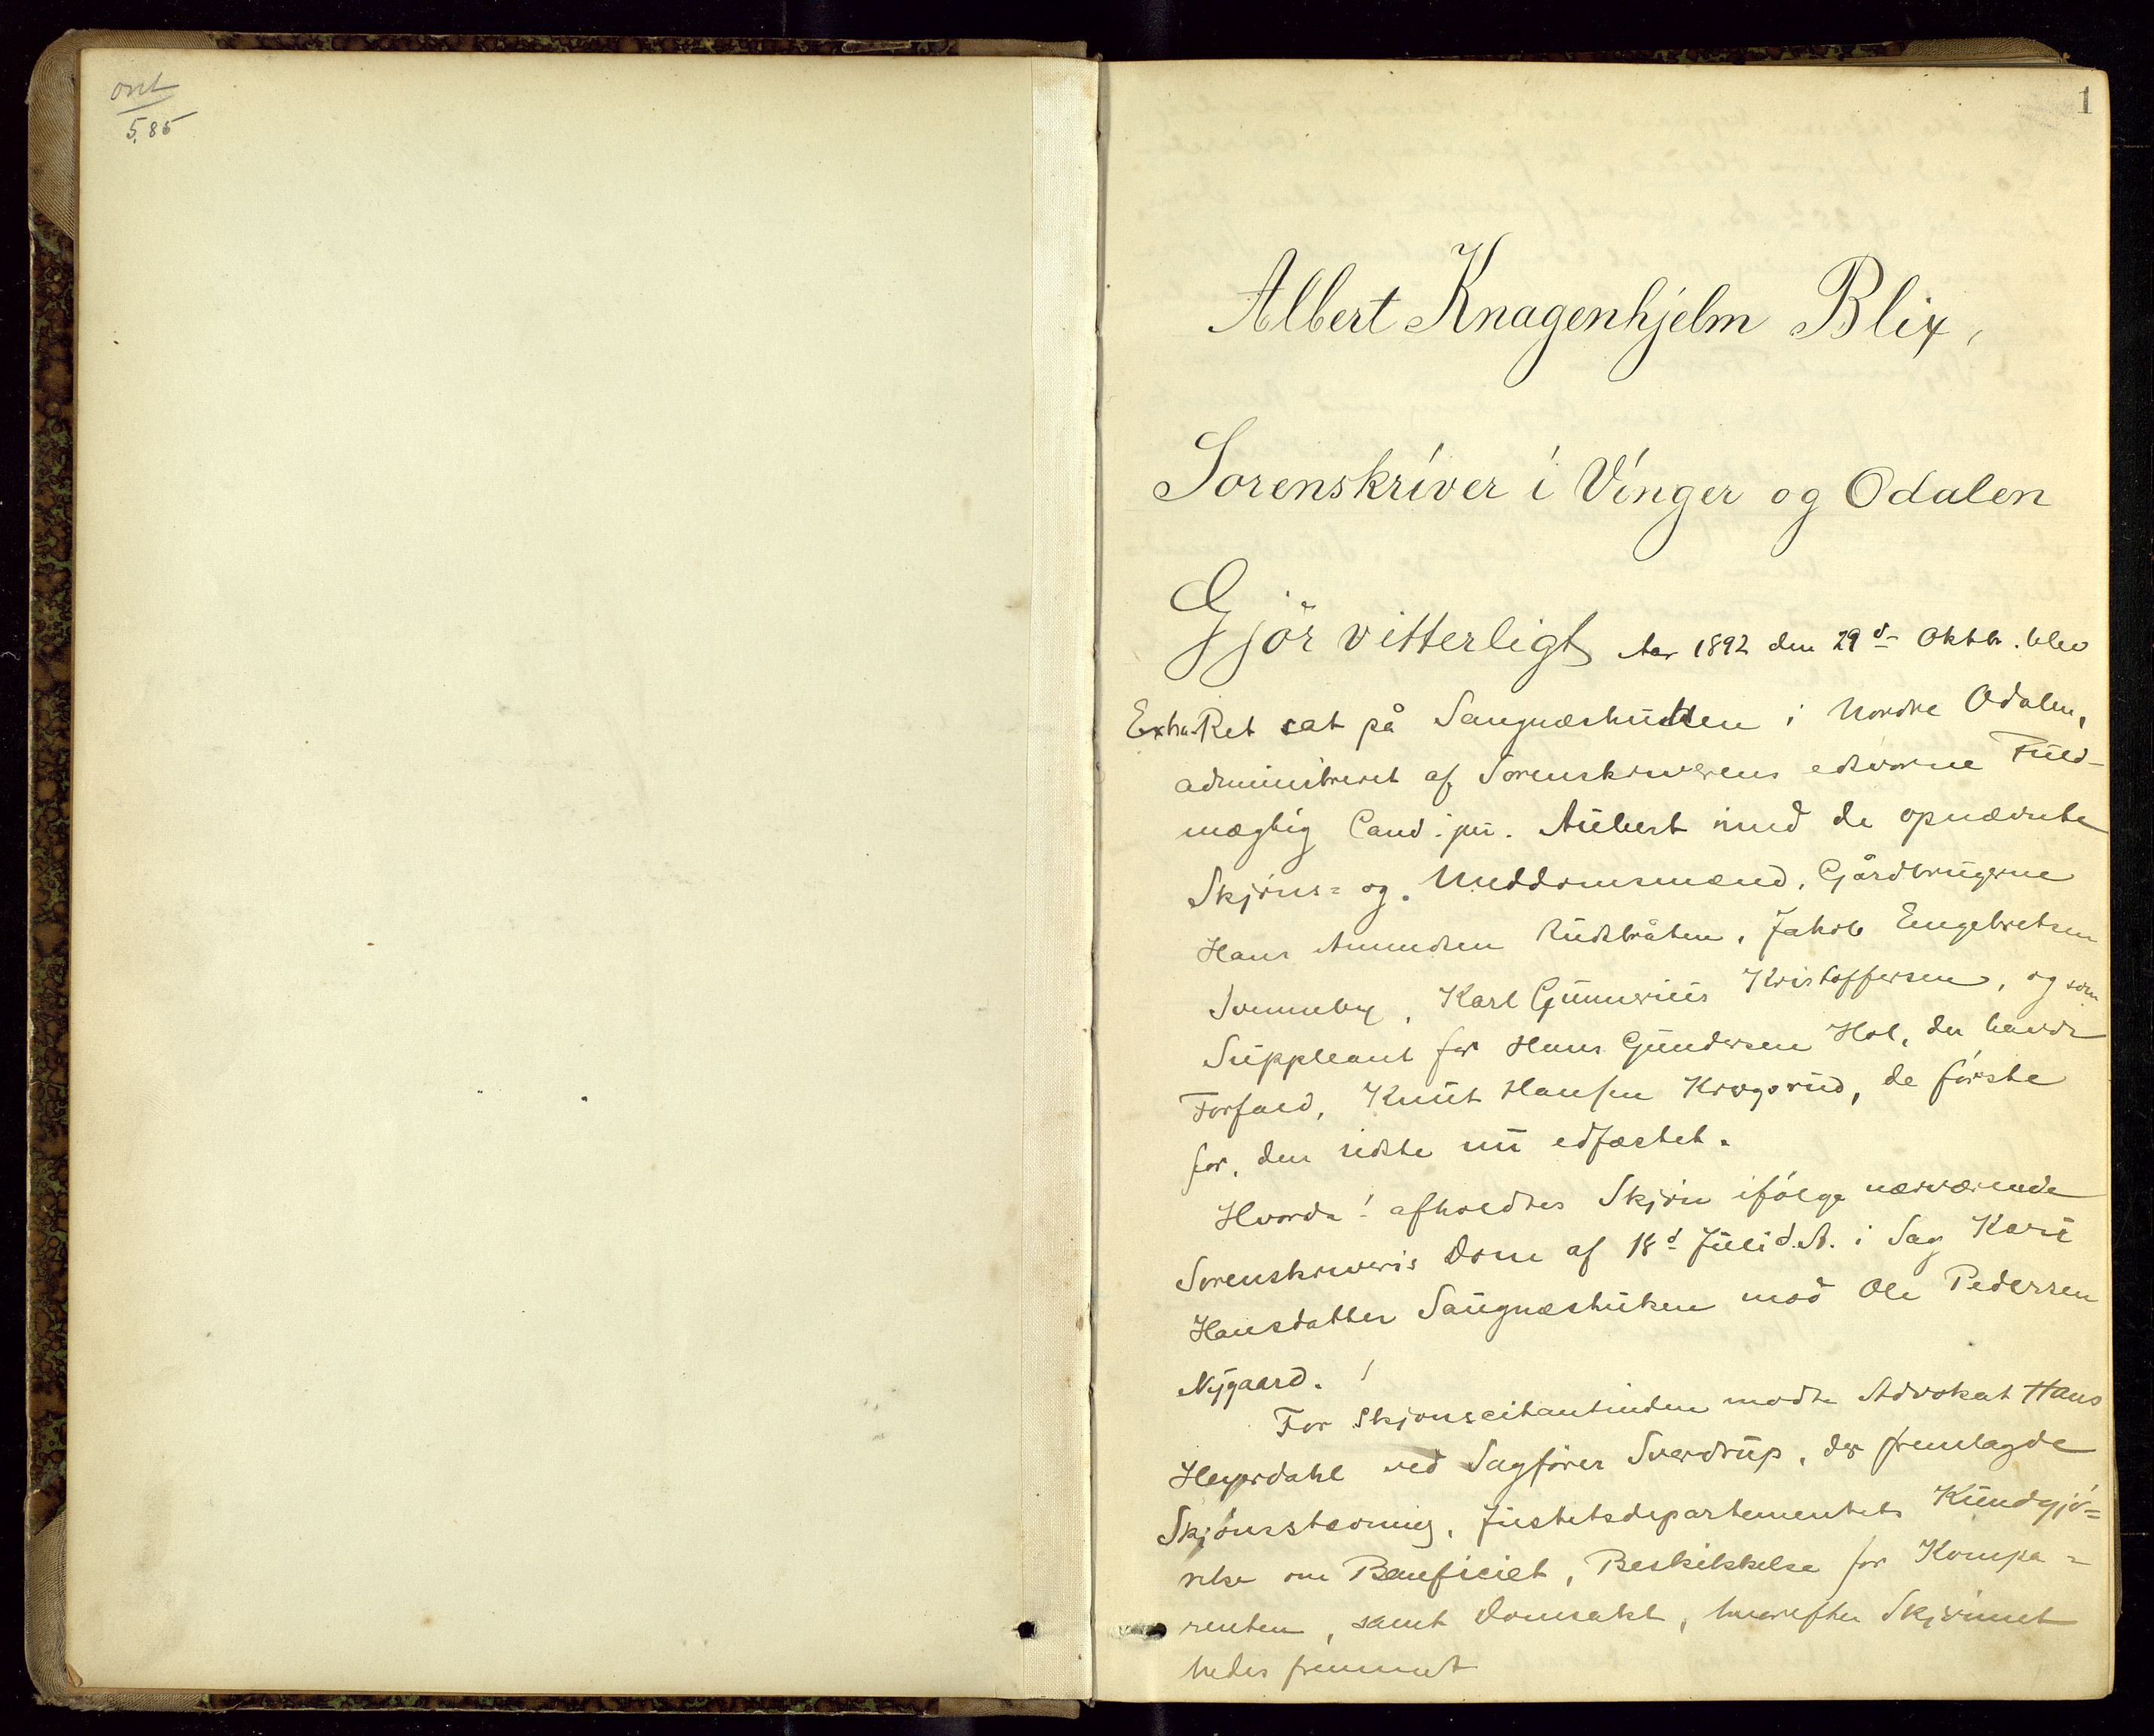 ovst
5.85
1
Albert Knagenhjelm Blix,
Sorenskriver i Vinger og Odalen
Gjör vitterligt Aar 1892 den 29d- Oktbr. blev
Extra-Ret sat på Saugnæshutten i Nordre Odalen,
administreret af Sorenskriverens edsvorne Fuld-
mægtig Cand. jur. Aubert med de opnævnte
Skjøns- og Meddomsmænd, Gårdbrugerne
Hans Amundsen Rudsbråten, Jakob Engebretsen
Svenneby, Karl Gunnerius Kristoffersen, og som
Suppleant for Hans Gundersen Hol, der havde
Forfald, Knut Hansen Krogsrud, de første
før, den sidste nu edfæstet.
Hvorda! afholdtes Skjøn ifølge nærværende
Sorenskriveris Dom af 18d Juli d.A. i Sag Kari
Hansdatter Saugnæshuken mod Ole Pedersen
Nygaard.
For Skjønscitantinden mødte Advokat Hans
Heyerdahl ved Sagfører Sverdrup, der fremlagde
Skjønsstevning, Justitsdepartementets Kundgjø=
relse om Beneficiet, Beskikkelse for Kompa=
renten, samt Domsakt, hvorefter Skjønnet
bedes fremmet